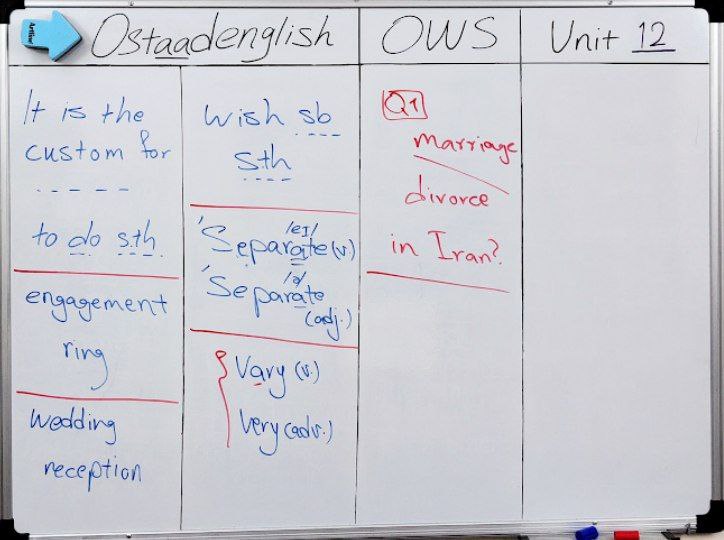 Ostaadenglish
OWS
Unit 12
It is the
custom for
- - - - -
to do sth.
engagement
ring
Wedding
reception
wish sb
sth
/eɪ/
'Separate (v.)
/ə/
'Separate
(adj.)
Vary (v.)
Very (adv.)
Q1
marriage
divorce
in Iran?